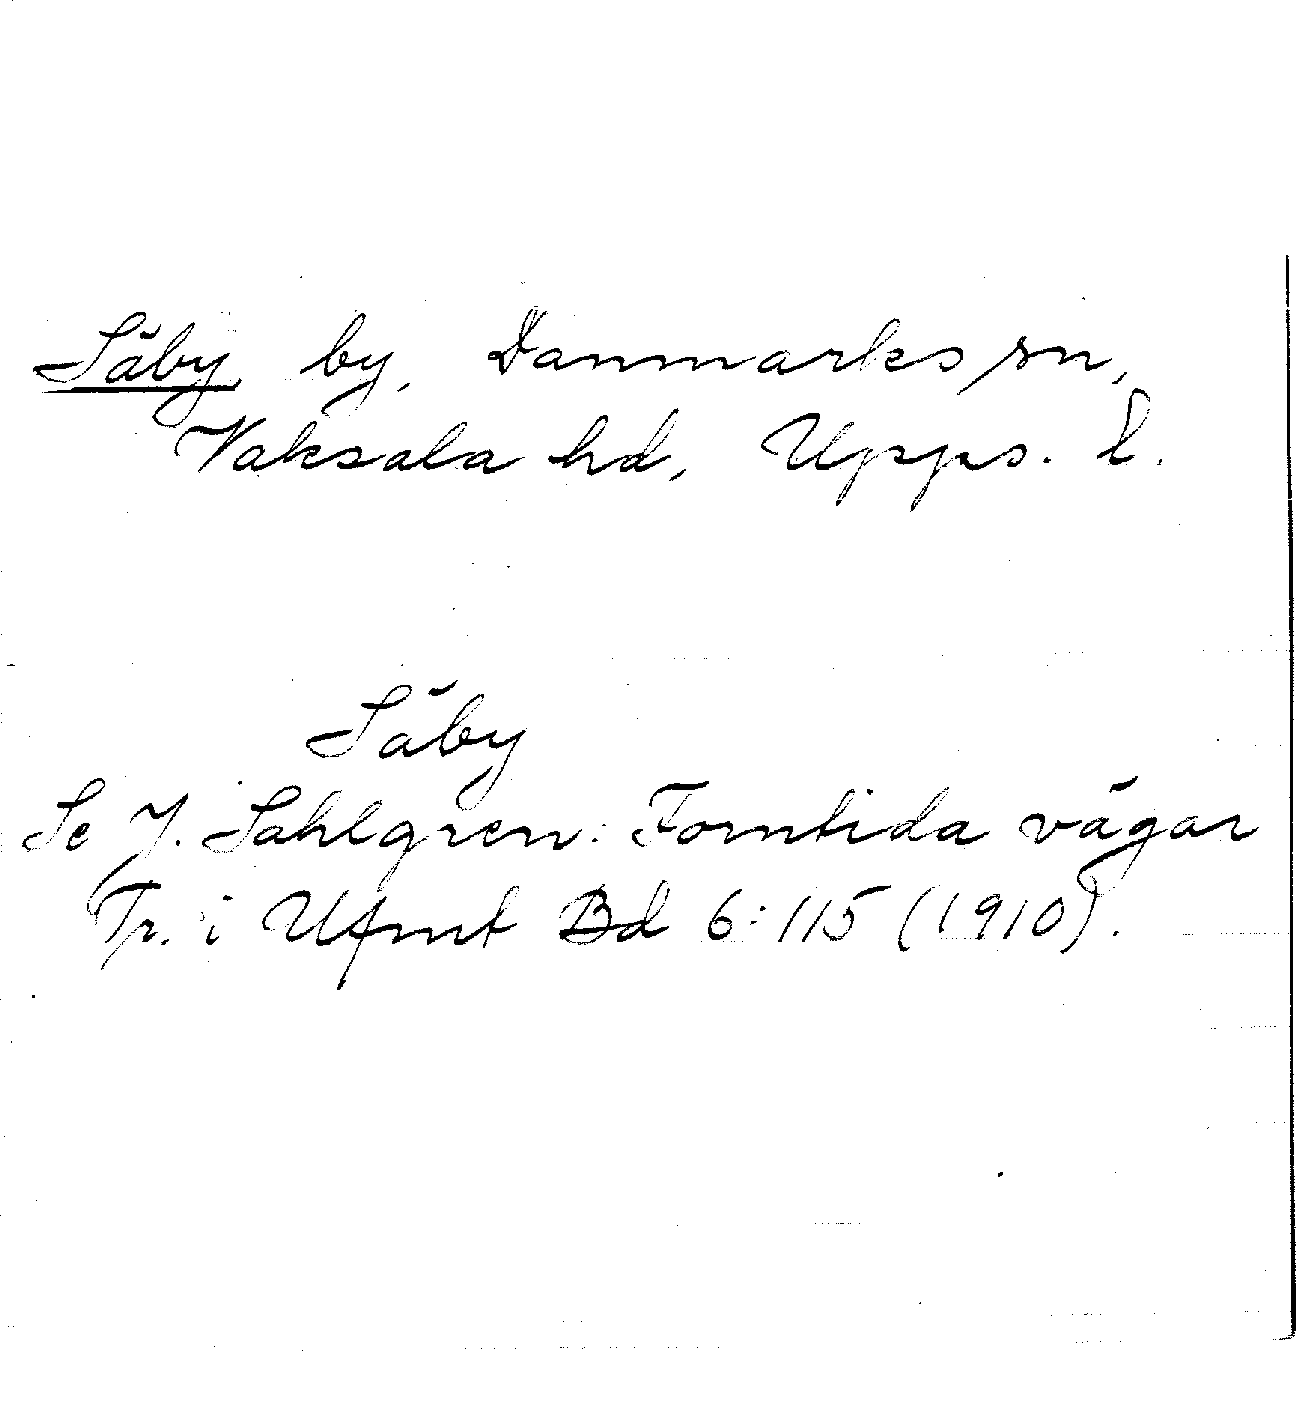 Säby by, Danmarks sn,
Vaksala hd, Upps. l.
Säby
Se J. Sahlgren: Forntida vägar
Tr. i Ufmt Bd 6:115 (1910).